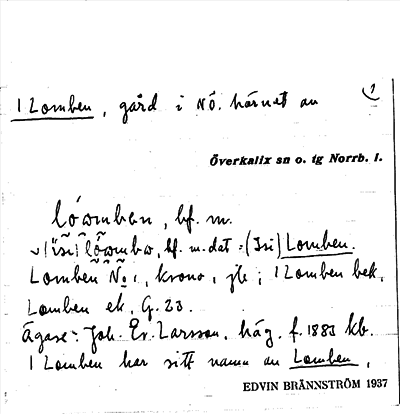 1 Lomben, gård i NÖ. hörnet av
Överkalix sn o. tg Norrb. l.
lówmben, bf. m.
(isi) lówmbω, bf. m. dat = (Isi) Lomben.
Lomben No 1, krono, jb; 1 Lomben bek.
Lomben ek. G. 23.
Ägare: Joh. Er. Larsson, häg. f. 1883 kb.
1 Lomben har sitt namn av Lomben.
EDVIN BRÄNNSTRÖM 1937